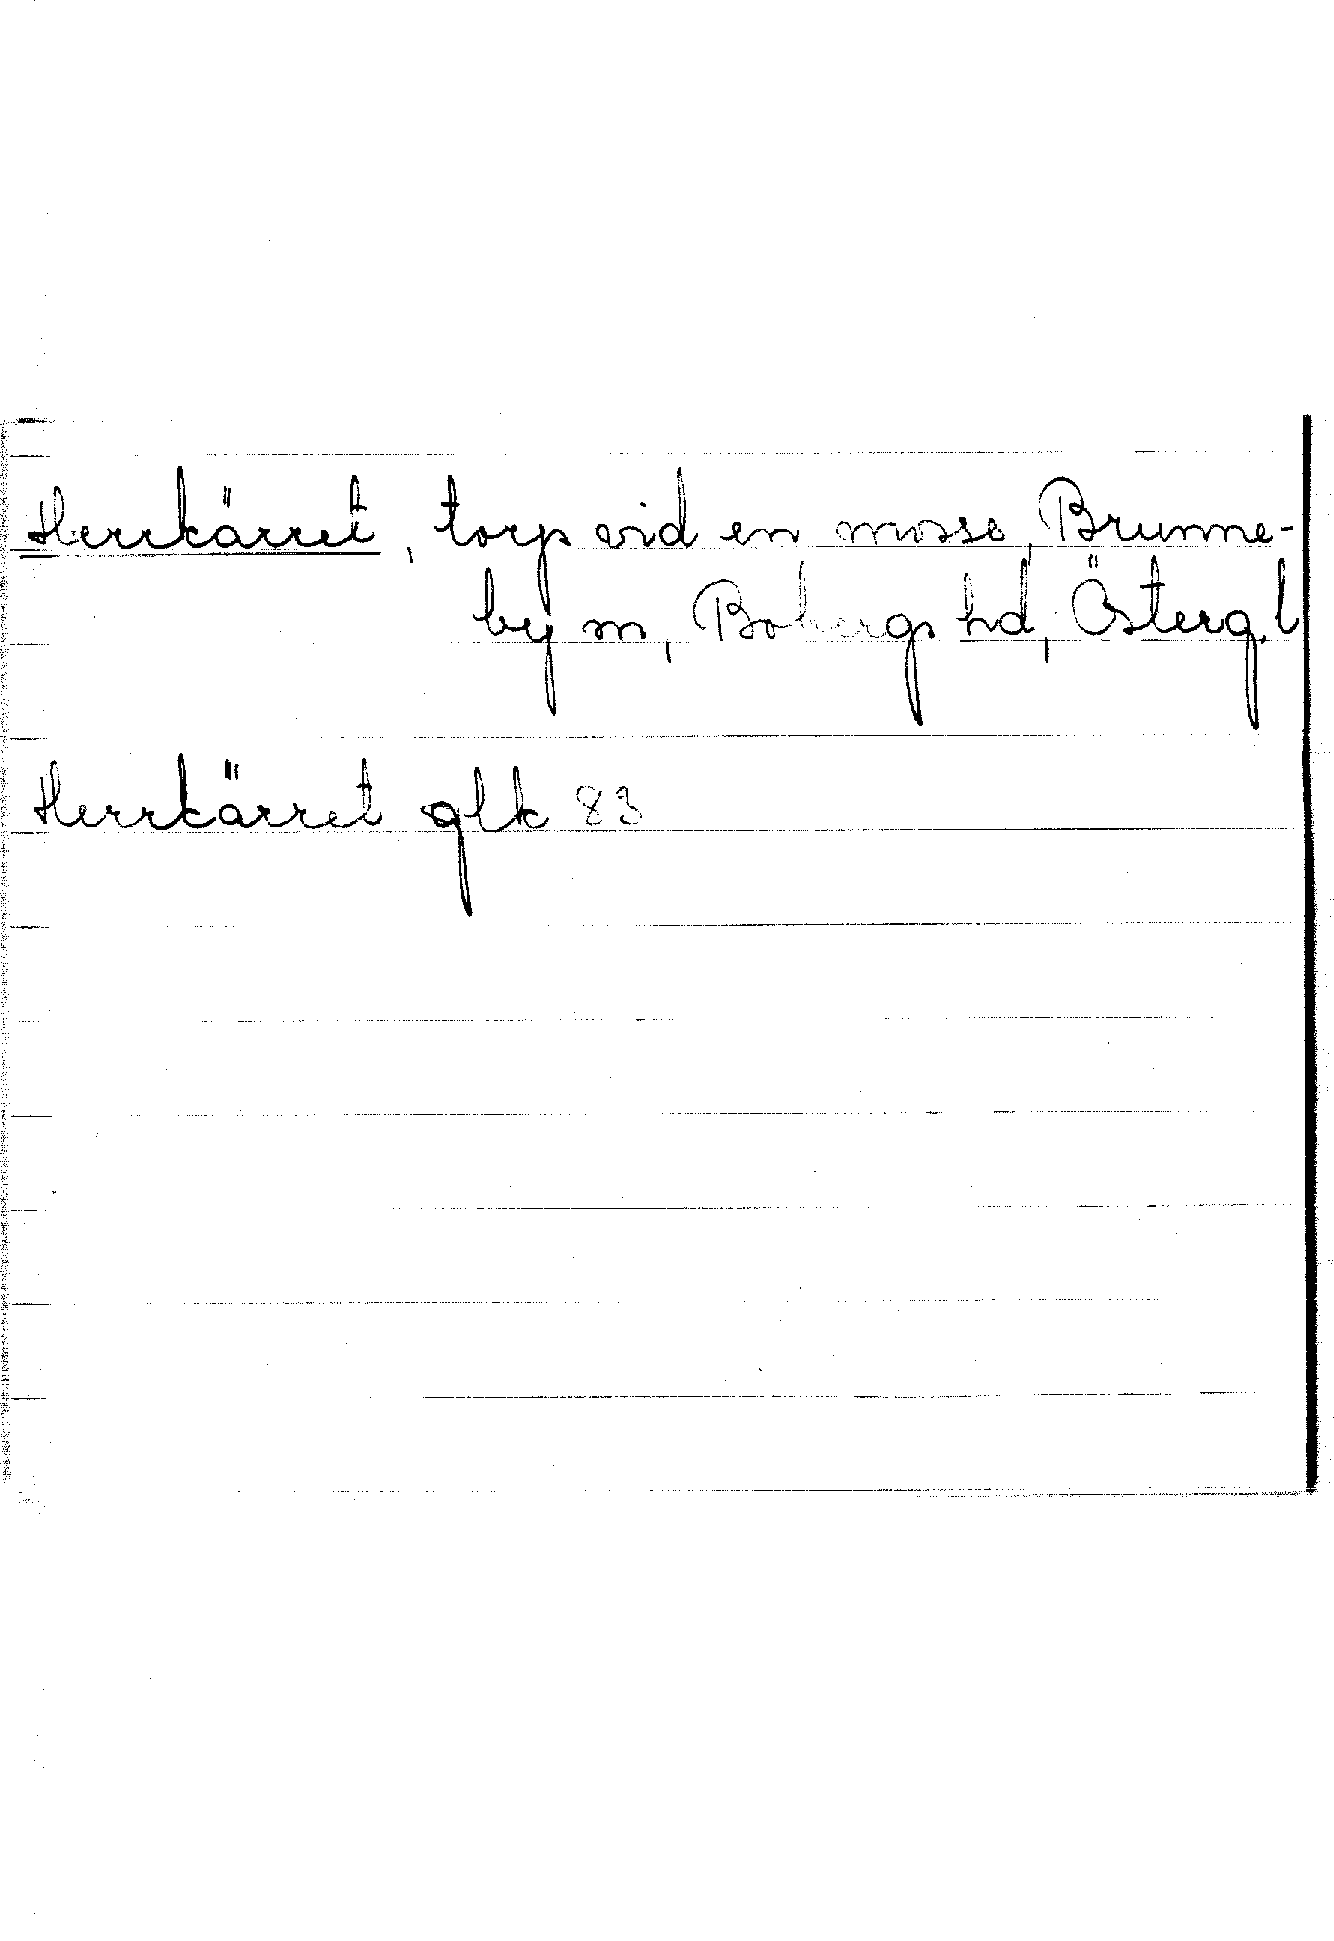 Herrkärret, torp vid en mosse, Brunne-
by sn, Bobergs hd, Österg. l
Herrkärret glk 83